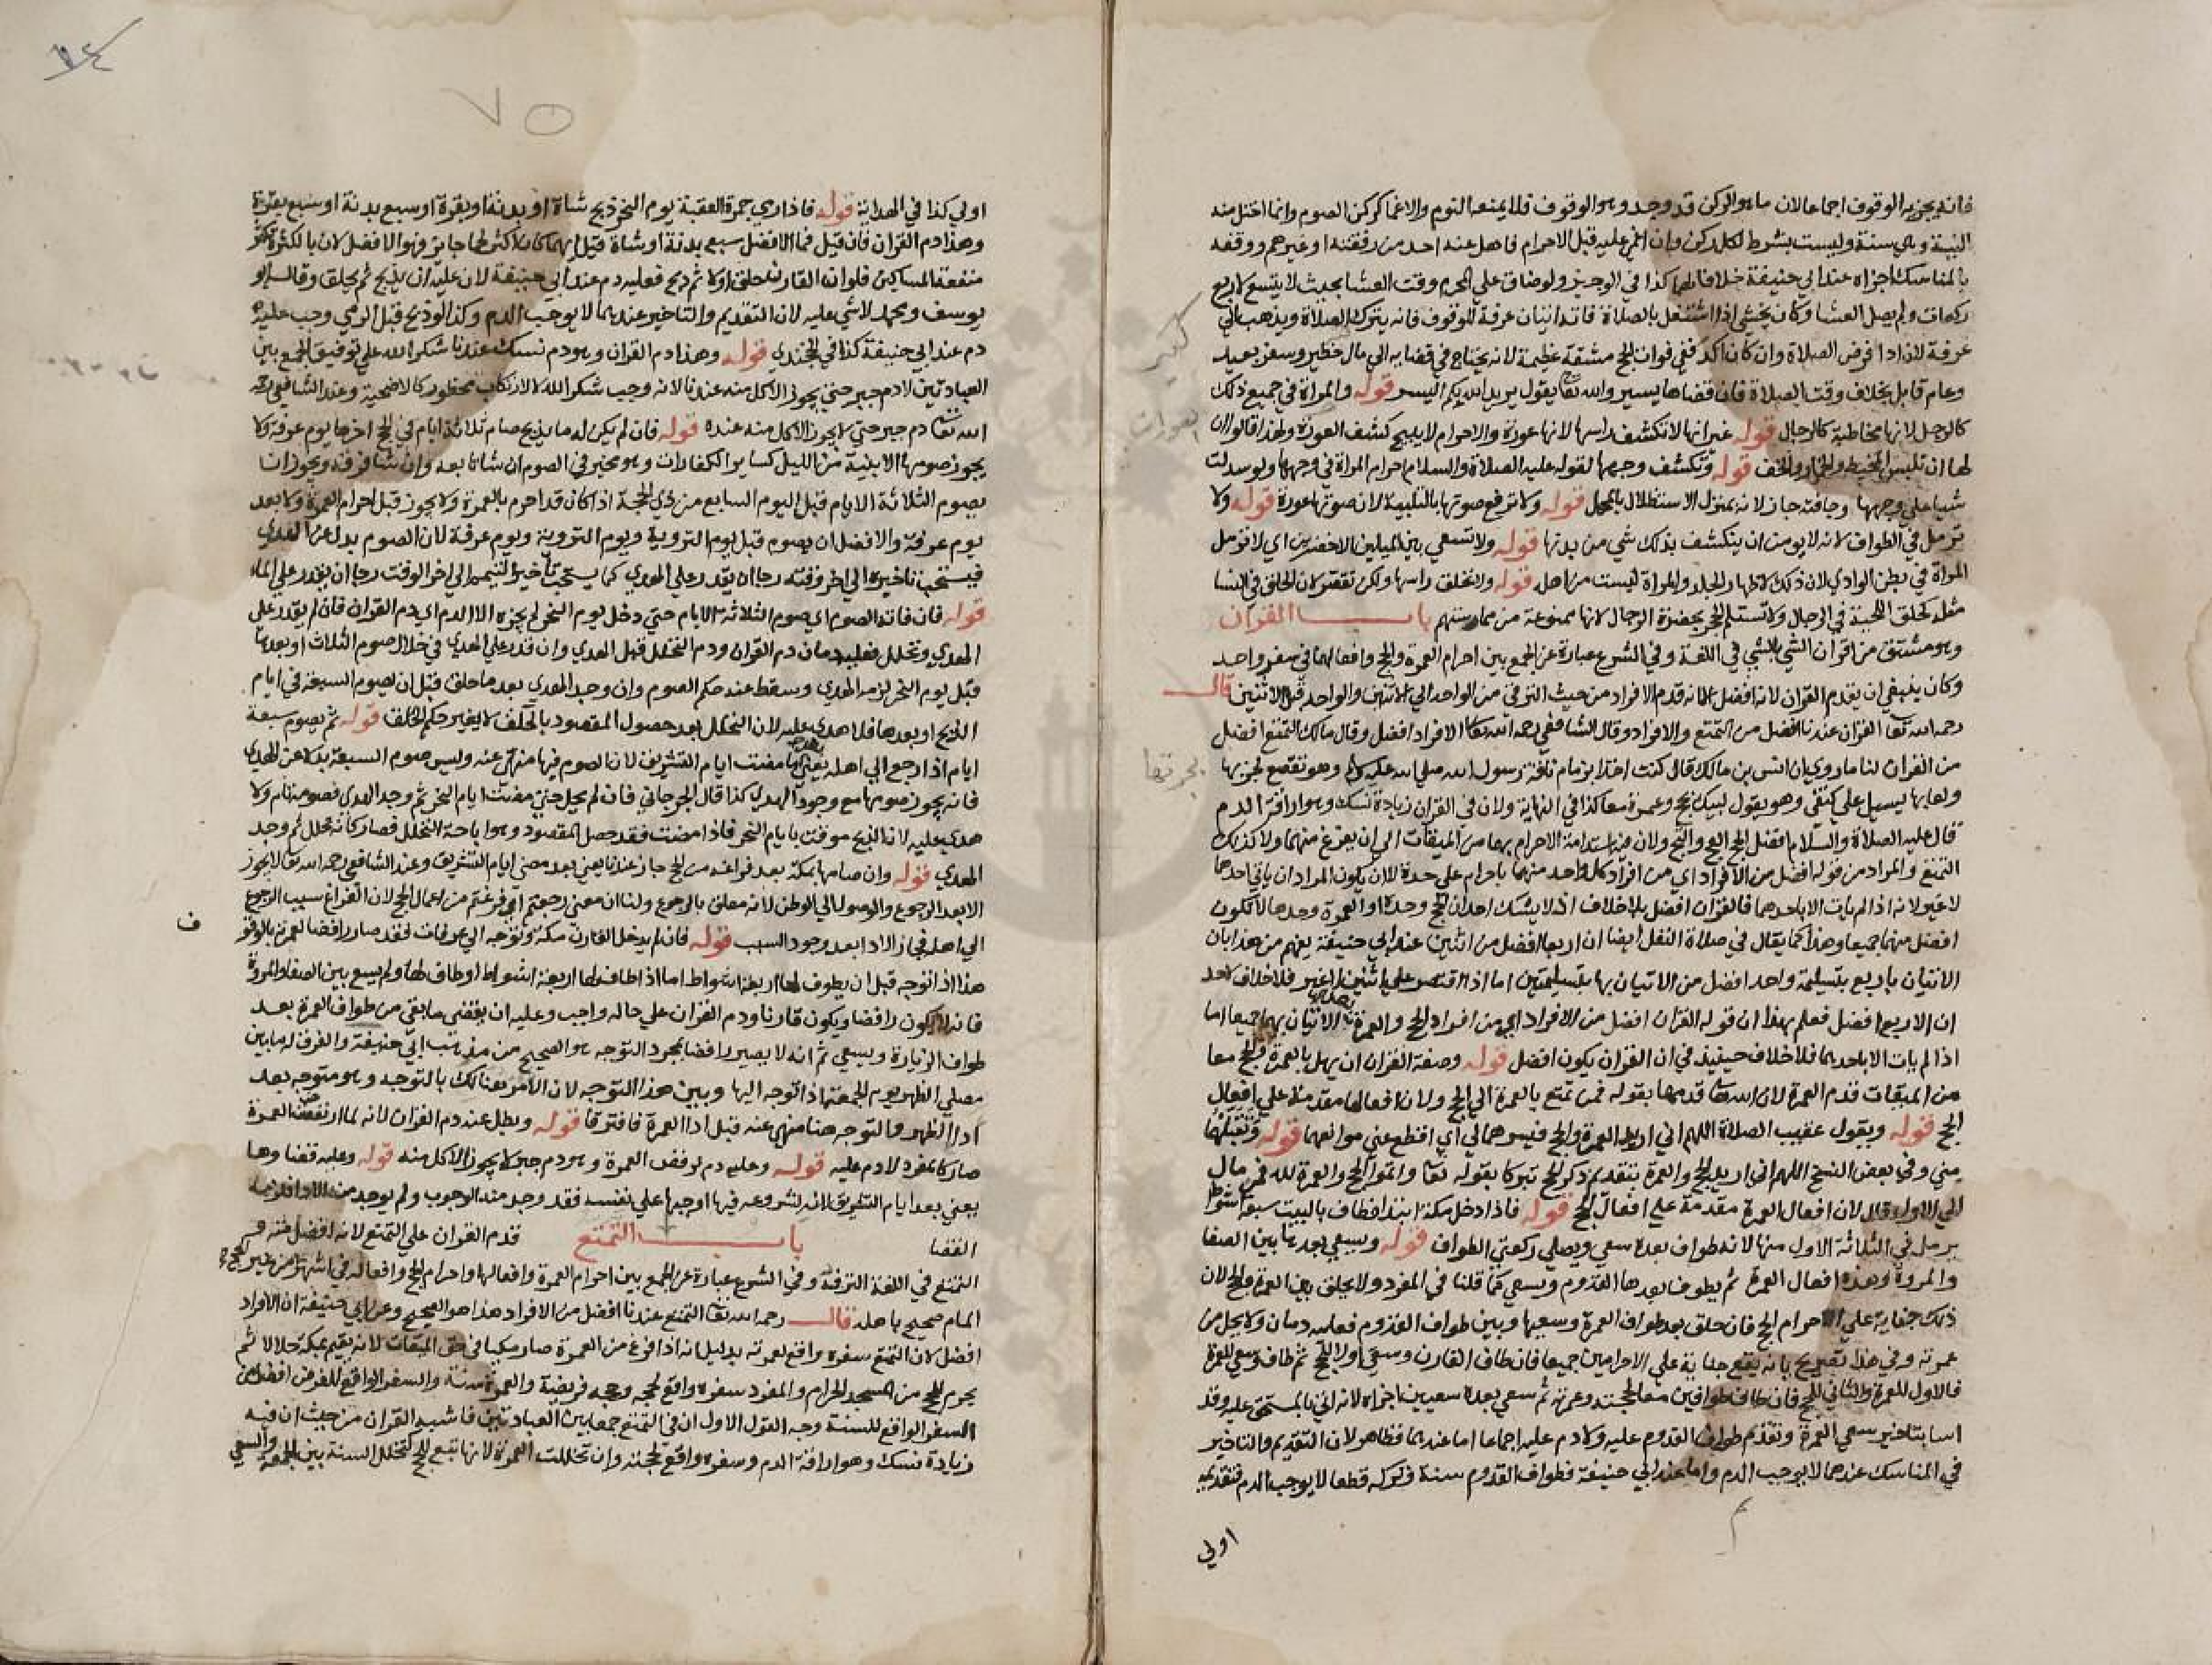 فانه يجزيه الوقوف اجماعا لان ما هو الركن قد وجد وهو الوقوف فلا يمنعه النوم والاغما كركن الصوم وانما اختل منه
النية وهي سنة وليست بشرط لكل ركن وان اغمي عليه قبل الاحرام فاهل عنه احد من رفقته او غيرهم ووقفه
بالمناسك اجزاه عند ابي حنيفة خلافا لهما كذا في الوجيز ولو ضاق علي المحرم وقت العشا بحيث لا يتسع لاربع
ركعات ولم يصل العشا وكان يخشي اذا اشتغل بالصلاة فاته اتيان عرفة للوقوف فانه يترك الصلاة ويذهب الي
عرفة لان ادا فرض الصلاة وان كان اكد ففي فوات الحج مشقة عظيمة لانه يحتاج في قضايه الي مال خطير وسفر بعيد
وعام قابل بخلاف وقت الصلاة فان قضاها يسير والله تعا يقول يريد الله بكم اليسر قوله والمراة في جميع ذلك
كالرجل لانها مخاطبة كالرجال قوله غير انها لا تكشف راسها لانها عورة والاحرام لا يبيح كشف العورة ولهذا قالوا ان
لها ان تلبس المخيط والخمار والخف قوله وتكشف وجهها لقوله عليه الصلاة والسلام احرام المراة في وجهها ولو سدلت
شيا علي وجهها وجافته جاز لانه بمنزل الاستظلال بالمحمل قوله ولا ترفع صوتها بالتلبية لان صوتها عورة قوله ولا
ترمل في الطواف لانه لا يومن ان ينكشف بذلك شي من بدنها قوله ولا تسعي بين الميلين الاخضرين اي لا ترمل
المراة في بطن الوادي لان ذلك لاظهار الجلد والمراة ليست من اهله قوله ولا تحلق راسها ولكن تقصر لان الحلق في النسا
مثله كحلق اللحية في الرجال ولا تستلم الحجر بحضرة الرجال لانها ممنوعة من مماستهم باب القران
وهو مشتق من اقران الشي بالشي في اللغة وفي الشرع عبارة عن الجمع بين احرام العمرة والحج وافعالهما في سفر واحد
وكان ينبغي ان يقدم القران لانه افضل الا انه قدم الافراد من حيث الترقي من الواحد الي الاثنين والواحد قبل الاثنين قال
رحمه الله تعا القران عندنا افضل من التمتع والافراد وقال الشافعي رحمه الله تعا الافراد افضل وقال مالك التمتع افضل
من القران لنا ما روي ان انس بن مالك قال كنت اخذا بزمام ناقة رسول الله صلي الله عليه وهو تقصع بجرتها
ولعابها ليسيل علي كتفي وهو يقول لبيك بحج وعمرة معا كذا في النهاية ولان في القران زيادة نسك وهو اراقة الدم
قال عليه الصلاة والسلام افضل الحج العج والثج ولان فيه استدامة الاحرام بهما من الميقات الي ان يفرغ منهما ولا كذلك
التمتع والمراد من قوله افضل من الافراد اي من افراد كل واحد منهما باحرام علي حدة لا ان يكون المراد ان ياتي احدهما
لا غير لانه اذا لم يات الا باحدهما فالقران افضل بلا خلاف اذ لا يشك احد ان الحج وحده او العمرة وحدها لا تكون
افضل منهما جميعا وهذا كما يقال في صلاة النفل ايضا ان اربعا افضل من اثنين عند ابي حنيفة يفهم من هذا بان
الاتيان باربع بتسليمة واحد افضل من الاتيان بها بتسليمتين اما اذا اقتصر علي اثنين لا غير فلا خلاف لاحد
ان الاربع افضل فعلم بهذا ان قوله القران افضل من الافراد اي من افراد الحج والعمرة الاتيان بهما جميعا اما
اذا لم يات الا باحدهما فلا خلاف حينيذ في ان القران يكون افضل قوله وصفة القران ان يهل بالعمرة والحج معا
من الميقات قدم العمرة لان الله تعا قدمها بقوله فمن تمتع بالعمرة الي الحج ولان افعالها مقدمة علي افعال
الحج قوله ويقول عقيب الصلاة اللهم اني اريد العمرة والحج فيسرهما لي اي اقطع عني موانعهما قوله وتقبلهما
مني وفي بعض النسخ اللهم اني اريد الحج والعمرة بتقديم ذكر الحج تبركا بقوله تعا واتموا الحج والعمرة لله فمن مال
الي الاول قال لان افعال العمرة مقدمة علي افعال الحج قوله فاذا دخل مكة ابتدا فطاف بالبيت سبعة اشواط
يرمل في الثلاثة الاول منها لانه طواف بعده سعي ويصلي ركعتي الطواف قوله ويسعي بعدها بين الصفا
والمروة وهذه افعال العمرة ثم يطوف بعدها القدوم ويسعي كما قلنا في المفرد ولا يحلق بين العمرة والحج لان
ذلك جناية علي احرام الحج فان حلق بعد طواف العمرة وسعيها وبين طواف القدوم فعليه دمان ولا يحل من
عمرته وفي هذا تصريح بانه يقع جناية علي الاحرامين جميعا فان طاف القارن وسعي اولا للحج ثم طاف وسعي للعمرة
فالاول للعمرة والثاني للحج فان طاف طوافين معا لحجته وعمرته ثم سعي بعده سعيين اجزاه لانه اتي بالمستحق عليه وقد
اسا بتاخير سعي العمرة وتقديم طواف القدوم عليه ولا دم عليه اجماعا اما عندهما فظاهر لان التقديم والتاخير
في المناسك عندهما لا يوجب الدم واما عند ابي حنيفة فطواف القدوم سنة وتركه قطعا لا يوجب الدم فتقديمه
اولي
بجرتها
٧٥
اولي كذا في الهداية قوله فاذا رمي جمرة العقبة يوم النحر ذبح شاة او بدنة او بقرة او سبع بدنة او سبع بقرة
وهذا دم القران فان قيل فما الافضل سبع بدنة او شاة قيل ايهما كان لاكثر لحما جايز فهو الافضل لان بالكثرة تكثر
منفعة المساكين فلو ان القارن حلق اولا ثم ذبح فعليه دم عند ابي حنيفة لان عليه ان يذبح ثم يحلق وقال ابو
يوسف ومحمد لا شي عليه لان التقديم والتاخير عندهما لا يوجب الدم وكذا لو ذبح قبل الرمي وجب عليه
دم عند ابي حنيفة كذا في الخجندي قوله وهذا دم القران وهو دم نسك عندنا شكرا لله علي توفيق الجمع بين
العبادتين لا دم جبر حتي يجوز الاكل منه عندنا لانه وجب شكرا لله لا لارتكاب محظور كالاضحية وعند الشافعي رحمه
الله تعا دم جبر حتي لا يجوز الاكل منه عنده قوله فان لم يكن له ما يذبح صام ثلاثة ايام في الحج اخرها يوم عرفة ولا
يجوز صومها الا بنية من الليل كساير الكفارات وهو مخير في الصوم ان شا تابعه وان شا فرقه ويجوز ان
يصوم الثلاثة الايام قبل اليوم السابع من ذي الحجة اذا كان قد احرم بالعمرة ولا يجوز قبل احرام العمرة ولا بعد
يوم عرفة والافضل ان يصوم قبل يوم التروية ويوم التروية ويوم عرفة لان الصوم بدل عن الهدي
فيستحب تاخيره الي اخر وقته رجا ان يقدر علي الهدي كما يستحب تاخير التيمم الي اخر الوقت رجا ان يقدر علي الماء
قوله فان فاته الصوم اي صوم الثلاثة الايام حتي دخل يوم النحر لم يجزه الا الدم اي دم القران فان لم يقدر علي
الهدي وتحلل فعليه دمان دم القران ودم التحلل قبل الهدي وان قدر علي الهدي في خلال صوم الثلاث او بعدها
قبل يوم النحر لزمه الهدي وسقط عنه حكم الصوم وان وجد الهدي بعد ما حلق قبل ان يصوم السبعة في ايام
الذبح او بعدها فلا هدي عليه لان التحلل بعد حصول المقصود بالخلف لا يغير حكم الخلف قوله ثم يصوم سبعة
ايام اذا رجع الي اهله يعني ما مضت ايام التشريق لان الصوم فيها منهي عنه وليس صوم السبعة بدلا عن الهدي
فانه يجوز صومها مع وجود الهدي كذا قال الجرجاني فان لم يحل حتي مضت ايام النحر ثم وجد الهدي فصومه تام ولا
هدي عليه لان الذبح موقت بايام النحر فاذا مضت فقد حصل المقصود وهو اباحة التحلل فصار كانه تحلل ثم وجد
الهدي قوله وان صامها بمكة بعد فراغه من الحج جاز عندنا يعني بعد مضي ايام التشريق وعند الشافعي رحمه الله تعا لا يجوز
الا بعد الرجوع والوصول الي الوطن لانه معلق بالرجوع ولنا ان معني رجعتم اي فرغتم من اعمال الحج لان الفراغ سبب الرجوع
الي اهله فجاز الادا بعد وجود السبب قوله فان لم يدخل القارن مكة وتوجه الي عرفات فقد صار رافضا لعمرته بالوقوف
هذا اذا توجه قبل ان يطوف لها اربعة اشواط اما اذا طاف لها اربعة اشواط او طاف لها ولم يسع بين الصفا والمروة
فانه لا يكون رافضا ويكون قارنا ودم القران علي حاله واجب وعليه ان يقضي ما بقي من طواف العمرة بعد
طواف الزيارة ويسعي ثم انه لا يصير رافضا بمجرد التوجه هو الصحيح من مذهب ابي حنيفة والفرق له ما بين
مصلي الظهر يوم الجمعة اذا توجه اليها وبين هذا التوجه لان الامر هنالك بالتوجه وهو متوجه بعد
ادا الظهر والتوجه هنا منهي عنه قبل ادا العمرة فافترقا قوله وبطل عنه دم القران لانه لما ارتفضت العمرة
صار كالمفرد لا دم عليه قوله وعليه دم لرفض العمرة وهو دم جبر لا يجوز الاكل منه قوله وعليه قضاوها
يعني بعد ايام التشريق لانه لشروعه فيها اوجبها علي نفسه فقد وجد منه الوجوب ولم يوجد منه الادا فلزمه
القضا باب التمتع قدم القران علي التمتع لانه افضل منه و
التمتع في اللغة الترفه وفي الشرع عبارة عن الجمع بين احرام العمرة وافعالها واحرام الحج وافعاله في اشهر الحج من غير
المام صحيح باهله قال رحمه الله تعا التمتع عندنا افضل من الافراد هذا هو الصحيح وعن ابي حنيفة ان الافراد
افضل لان التمتع سفره واقع لعمرته بدليل انه اذا فرغ من العمرة صار مكيا في حق الميقات لانه يقيم بمكة حلالا ثم
يحرم للحج من المسجد الحرام والمفرد سفره واقع لحجه وحجه فريضة والعمرة سنة والسفر الواقع للفرض افضل من
السفر الواقع للسنة وجه القول الاول ان في التمتع جمعا بين العبادتين فاشبه القران من حيث ان فيه
زيادة نسك وهو اراقة الدم وسفره واقع لحجته وان تخللت العمرة لانها تبع للحج كتخلل السنة بين الجمعة والسعي
ف